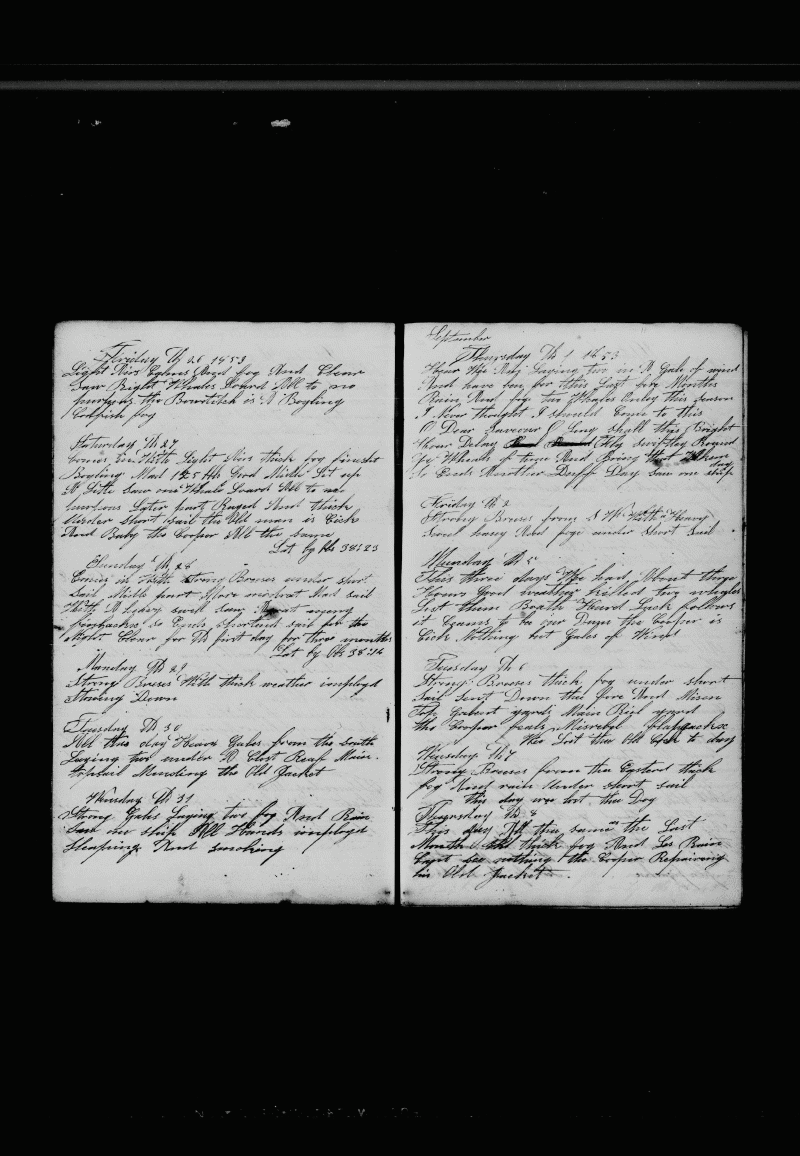 Friday Th 26 1853
Light Airs Calms And fog And Clear
Saw Right Whales Loard All to no
purpous the Bowditch is A Boyling
fog
Saturday Th 27
Comes in With Light Airs thick fog finisht
Boyling Mad 125 bbls Good Middle Let up
A Little Saw one Whale Loard All to no
purpous Later part Ruged And thick
Under Short Sail the Old man is Sick
And Baby the Cooper All the Same
Lat by Obs 58:23
Sunday Th 28
Comes in With Strong Breeses under short
Sail Midle part More modrat Mad sail
With A heavy swell Saw A great meny
finbacks so Ends shortend sail for the
Night Clear for Th first day for three months
Lat by Obs 58:14
Manday Th 29
Strong Breses With thick weather imployd
Stowing Down
Tuesday Th 30
All this day Heavy Gales from the South
Laying two under A Clost Reaf Main
topsail Mending the Old Jacket
Wensday Th 31
Strong Gales Laying two fog And Rain
Saw one ship All Hands imployd
Sleaping And smoking
September
Thursday Th 1 1853
Hear We Are Laying two in A Gale of wind
And have ben for this Last five Months
Rain And fog two Whales Only this season
I Never thought I should Come to this
O Dear Saveour O Long shall this Bright
Hour Delay Fly swiftley Round
Ye Wheals of time And Bring that
So Ends Another Duff Day Saw one ship
day
Friday Th 2
Strong Breses from S W With Heavy
Swell hasey And foge under short Sail
Munday Th 5
This three days We had About three
Hours Good weather killed two whales
Lost them Boath Heard Luck follows
it Seams to be our Dum the Cooper is
Sick Nothing but Gales of Wind
Tuesday Th 6
Strong Breses thick fog under short
Sail Sent Down the fore And Misen
Top Galent yards Main Rial yard
the Cooper feals Misrebel flapjacks
We Lost the Old to day
Wensday Th 7
Strong Breeses from the Eysterd thick
fog And rain Under Short sail
this day we the Dog
Thursday Th 8
This day All the same as the Last
Month thick fog And Rain
Cant see nothing the Cooper Repairing
his Old Jacket